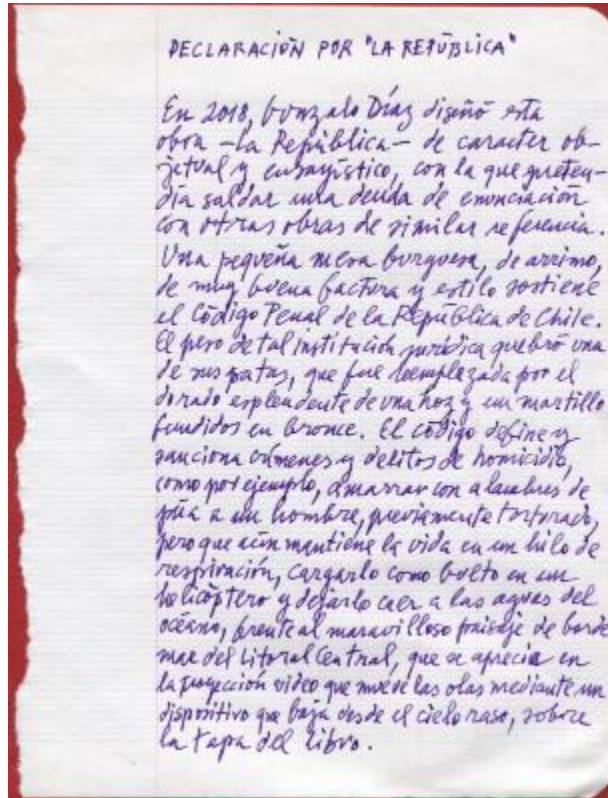 DECLARACIÓN POR "LA REPÚBLICA"
En 2018, Gonzalo Díaz diseñó esta
obra –La República– de caracter ob-
jetual y ensayístico, con la que preten-
día saldar una deuda de enunciación
con otras obras de similar referencia.
Una pequeña mesa burguesa, de arrimo,
de muy buena factura y estilo sostiene
el Código Penal de la República de Chile.
El peso de tal institución jurídica quebró una
de sus patas, que fue reemplazada por el
dorado esplendente de una hoz y un martillo
fundidos en bronce. El código define y
sanciona crímenes y delitos de homicidio,
como por ejemplo, amarrar con alambres de
púa a un hombre, previamente torturado,
pero que aún mantiene la vida en un hilo de
respiración, cargarlo como bulto en un
helicóptero y dejarlo caer a las aguas del
océano, frente al maravilloso paisaje de borde
mar del Litoral Central, que se aprecia en
la proyección video que mueve las olas mediante un
dispositivo que baja desde el cielo raso, sobre
la tapa del libro.